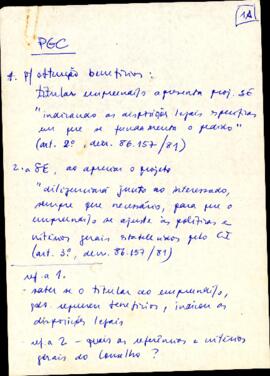 1A
PGC
1. p/ obtenção benefícios:
titular empreend/o apresenta proj. SE
"indicando as disposições legais específicas
em que se fundamenta o pedido"
(art. 2º, decr. 86.157/81)
2. a SE, ao apreciar o projeto
"diligenciará junto ao interessado,
sempre que necessário, para que o
empreend/o se ajuste às políticas e
critérios gerais estabelecidos pelo CI
(art. 3º, decr. 86.157/81)
ref. a 1.
- saber se o titular do empreend/o,
requerer benefícios, indicou as
disposições legais
- ref. a 2 - quais as referências e critérios
gerais do Conselho?